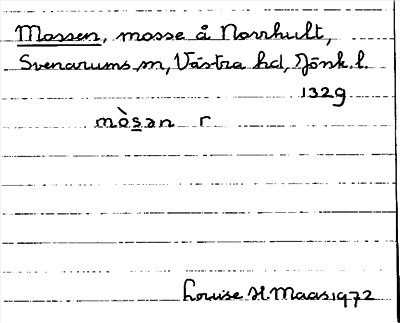 Mossen, mosse å Norrhult,
Svenarums sn, Västra hd, Jönk. l.
1329
mòsən r
Louise H. Maas 1972